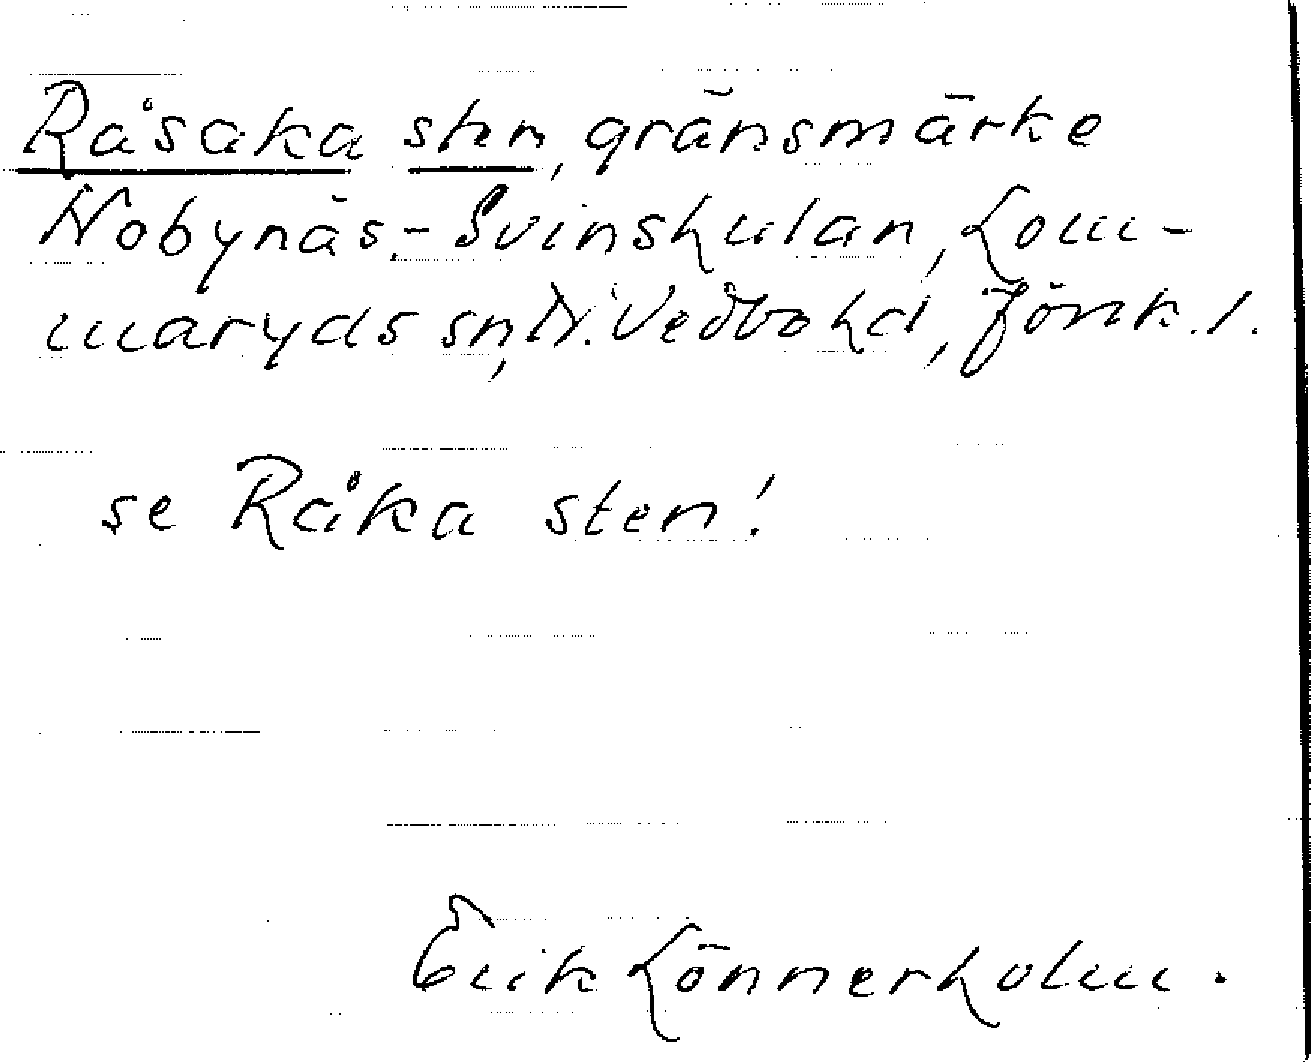 Råsaka sten, gränsmärke
Nobynäs-Svinshulan, Lom-
maryds sn, N. Vedbo hd, Jönk. l.
se Råka sten!
Erik Lönnerholm.